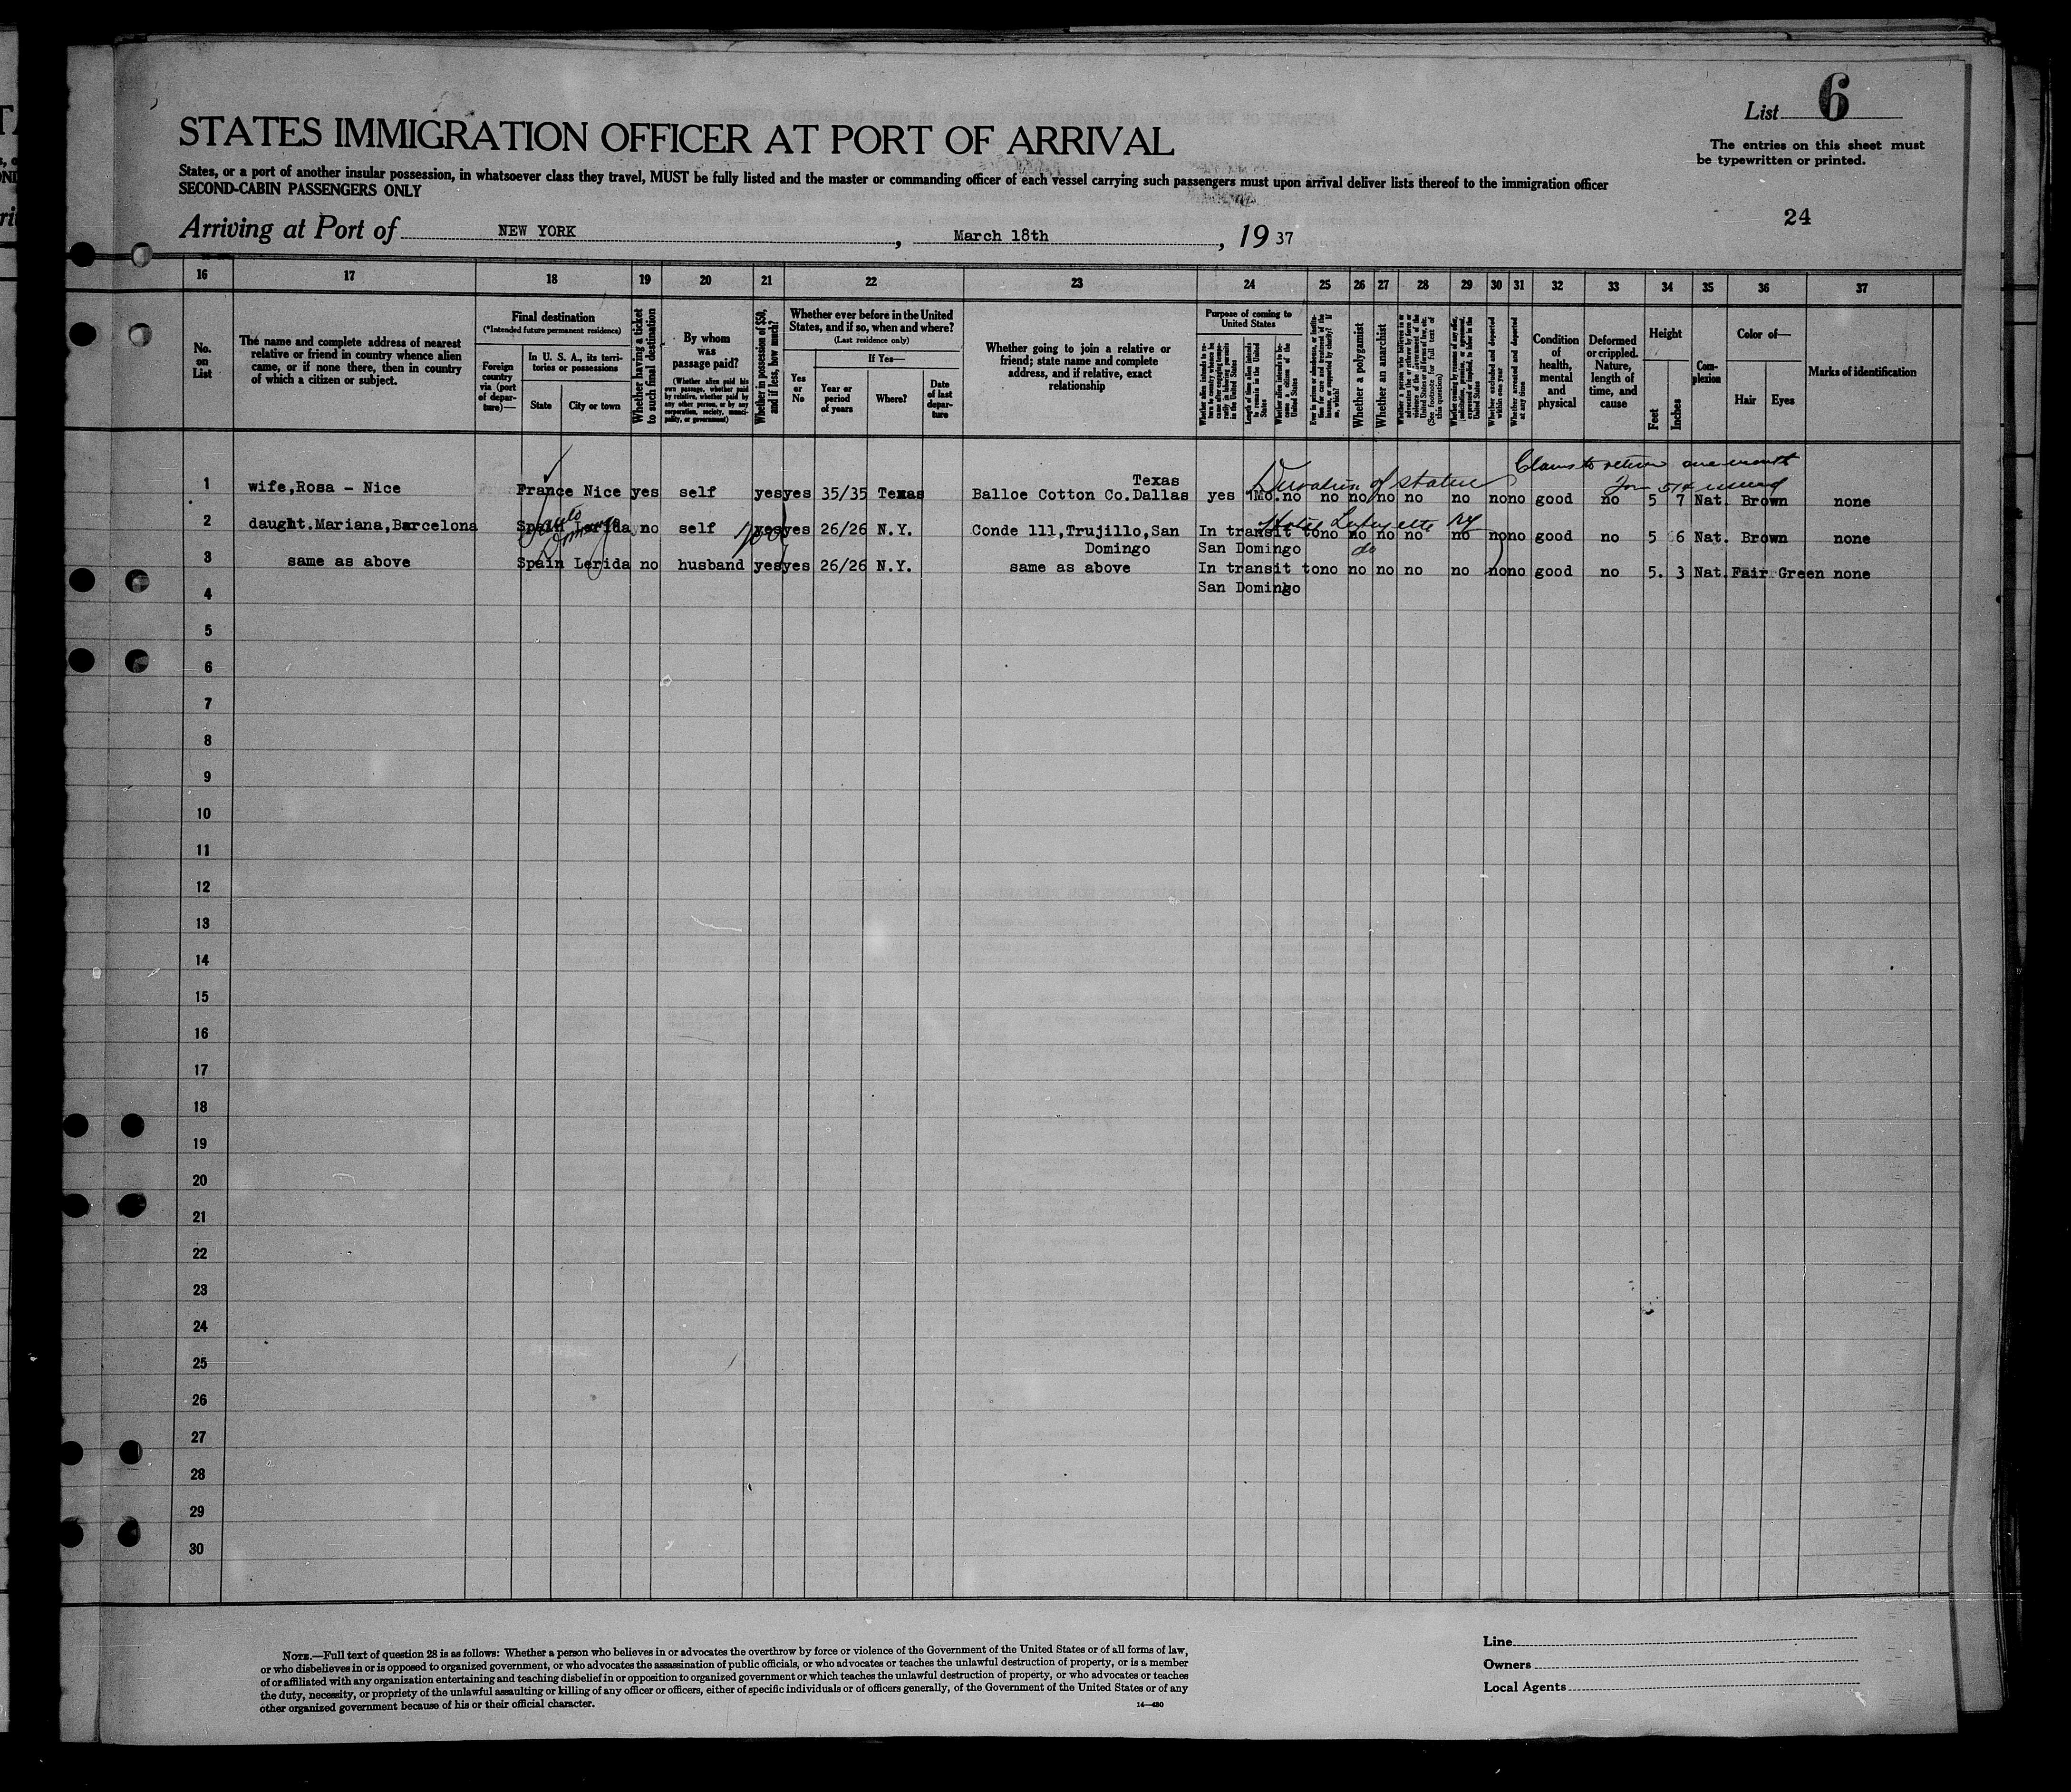 List 6
STATES IMMIGRATION OFFICER AT PORT OF ARRIVAL
The entries on this sheet must
be typewritten or printed.
States, or a port of another insular possession, in whatsoever class they travel, MUST be fully listed and the master or commanding officer of each vessel carrying such passengers must upon arrival deliver lists thereof to the immigration officer
SECOND-CABIN PASSENGERS ONLY
24
Arriving at Port of NEW YORK, March 18th, 19 37
16 17 18 19 20 21 22 23 24 25 26 27 28 29 30 31 32 33 34 35 36 37
No. on List
The name and complete address of nearest
relative or friend in country whence alien
came, or if none there, then in country
of which a citizen or subject.
Final destination
(*Intended future permanent residence)
Foreign country via (port of departure)—
In U. S. A., its territories or possessions
State
City or town
Whether having a ticket to such final destination
By whom was passage paid?
(Whether alien paid his own passage, whether paid by relative, whether paid by any other person, or by any corporation, society, municipality, or government)
Whether in possession of $50, and if less, how much?
Whether ever before in the United States, and if so, when and where?
(Last residence only)
Yes or No
If Yes—
Year or period of years
Where?
Date of last departure
Whether going to join a relative or
friend; state name and complete
address, and if relative, exact
relationship
Purpose of coming to United States
Whether a polygamist
Whether an anarchist
Whether excluded and deported within one year
Whether arrested and deported at any time
Condition of health, mental and physical
Deformed or crippled. Nature, length of time, and cause
Height
Feet
Inches
Complexion
Color of—
Hair
Eyes
Marks of identification
Claims to return one month
Duration of statue
Texas
1 wife,Rosa - Nice France Nice yes self yes yes 35/35 Texas Balloe Cotton Co.Dallas yes 1Mo. no no no no no no no no good no 5 7 Nat. Brown none
Santo Domingo
Hotel Lafayette NY
2 daught.Mariana,Barcelona Spain Lerida no self yes yes 26/26 N.Y. Conde 111,Trujillo,San In transit to no no no no no no no good no 5 6 Nat. Brown none
Domingo San Domingo do
3 same as above Spain Lerida no husband yes yes 26/26 N.Y. same as above In transit to no no no no no no no good no 5. 3 Nat. Fair Green none
4 San Domingo
5
6
7
8
9
10
11
12
13
14
15
16
17
18
19
20
21
22
23
24
25
26
27
28
29
30
NOTE.—Full text of question 28 is as follows: Whether a person who believes in or advocates the overthrow by force or violence of the Government of the United States or of all forms of law,
or who disbelieves in or is opposed to organized government, or who advocates the assassination of public officials, or who advocates or teaches the unlawful destruction of property, or is a member
of or affiliated with any organization entertaining and teaching disbelief in or opposition to organized government or which teaches the unlawful destruction of property, or who advocates or teaches
the duty, necessity, or propriety of the unlawful assaulting or killing of any officer or officers, either of specific individuals or of officers generally, of the Government of the United States or of any
other organized government because of his or their official character.
14—430
Line
Owners
Local Agents